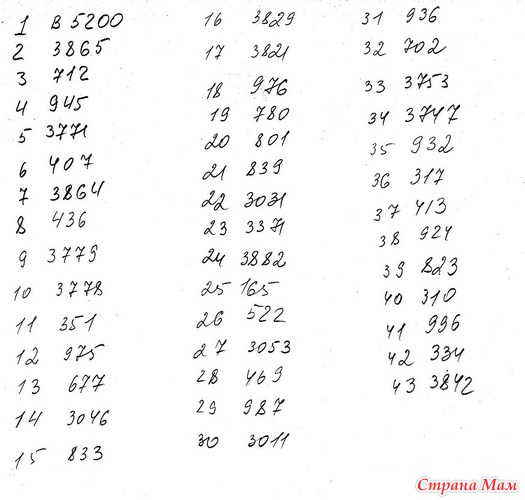 1 B 5200
2 3865
3 712
4 945
5 3771
6 407
7 3864
8 436
9 3779
10 3778
11 351
12 975
13 677
14 3046
15 833
16 3829
17 3821
18 976
19 780
20 801
21 839
22 3031
23 3371
24 3882
25 165
26 522
27 3053
28 469
29 987
30 3011
31 936
32 702
33 3753
34 3747
35 932
36 317
37 413
38 924
39 823
40 310
41 996
42 334
43 3842
Страна Мам